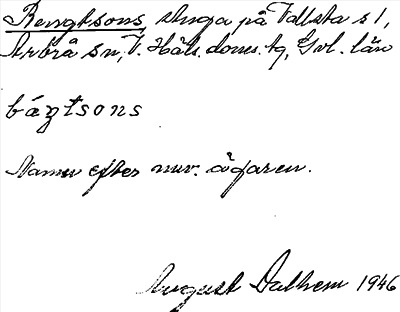 Bengtsons, stuga på Vallsta s 1,
Arbrå sn, V. Häls. doms. tg, Gvl. län
bággtsons
Namn efter nuv. ägaren.
August Dalhem 1946